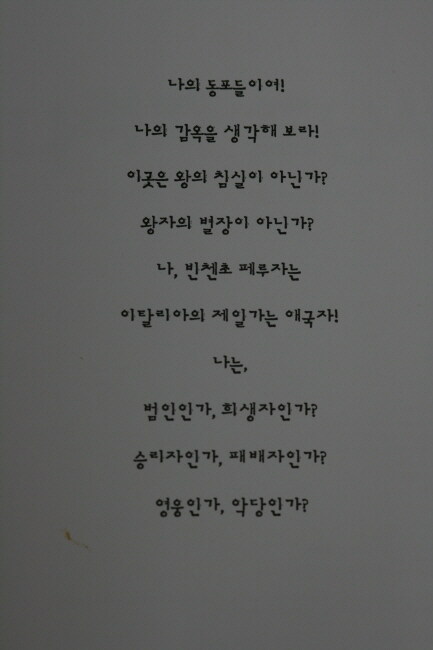 나의 동포들이여!
나의 감옥을 생각해 보라!
이곳은 왕의 침실이 아닌가?
왕자의 별장이 아닌가?
나, 빈첸초 페루자는
이탈리아의 제일가는 애국자!
나는,
범인인가, 희생자인가?
승리자인가, 패배자인가?
영웅인가, 악당인가?